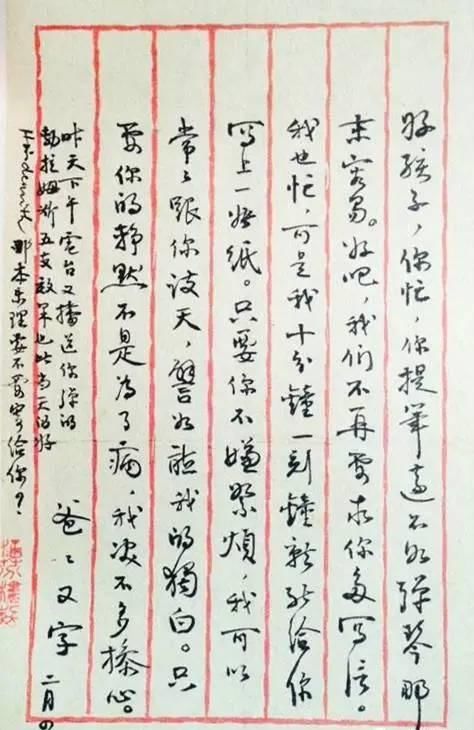 好孩子，你忙，你提筆遠不如彈琴那
末容易。好吧，我们不再要求你多写信。
我也忙，可是我十分鐘一刻鐘就能给你
写上一张纸。只要你不嫌絮煩，我可以
常々跟你谈天，譬如聽我的獨白。只
要你的静默不是为了病，我决不多操心。
爸々又字 二月
昨天下午電台又播送你彈的
勃拉姆斯五支，效果也比当天的好
那本樂理要不要寄给你？